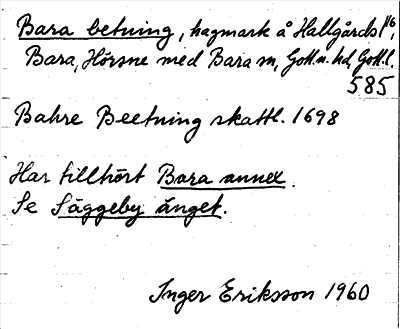 Bara betning, hagmark å Hallgårds 1/16,
Bara, Hörsne med Bara sn, Gotl. n. hd, Gotl. l.
585
Bahre Beetning skattl. 1698
Har tillhört Bara annex.
Se Säggeby änget.
Inger Eriksson 1960